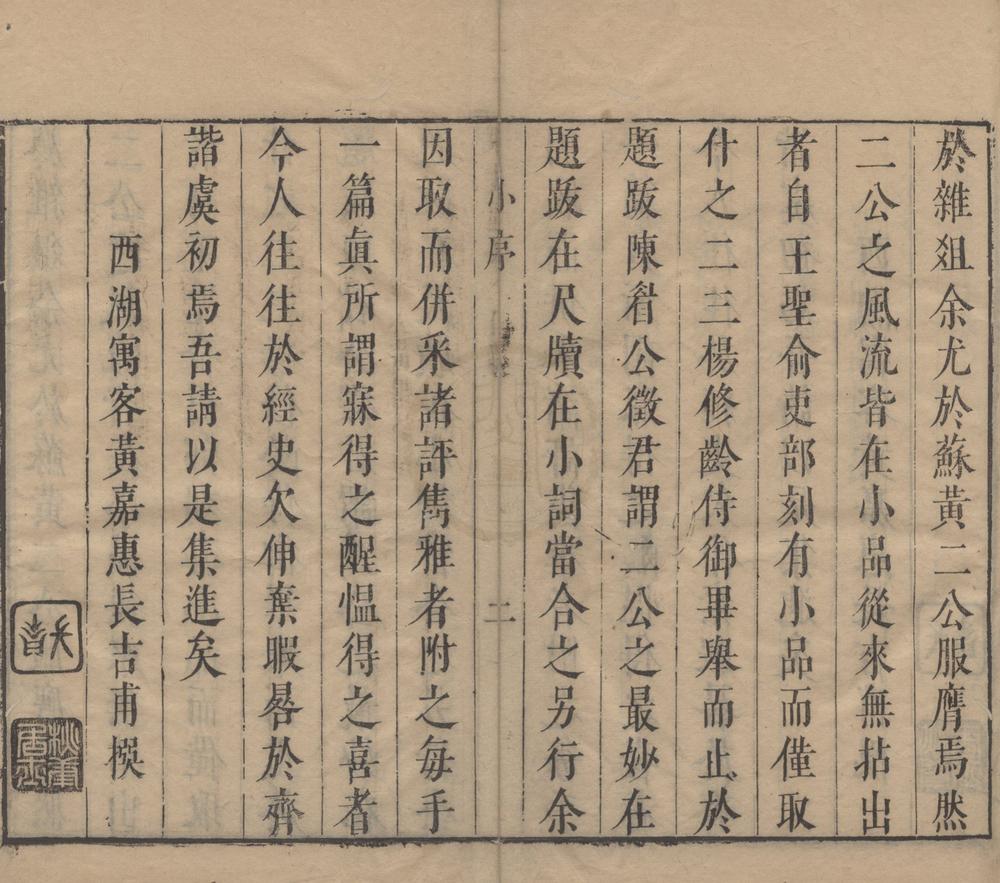 於雜爼余尤於蘇黃二公服膺焉然
二公之風流皆在小品從來無拈出
者自王聖俞吏部刻有小品而僅取
什之二三楊修齡侍御畢舉而止於
題跋陳眷公徵君謂二公之最妙在
題跋在尺牘在小詞當合之另行余
小序
二
因取而併釆諸評雋雅者附之每手
一篇眞所謂寐得之醒愠得之喜者
今人往往於經史欠伸棄暇晷於齊
諧虞初焉吾請以是集進矣
西湖寓客黃嘉惠長吉甫撰